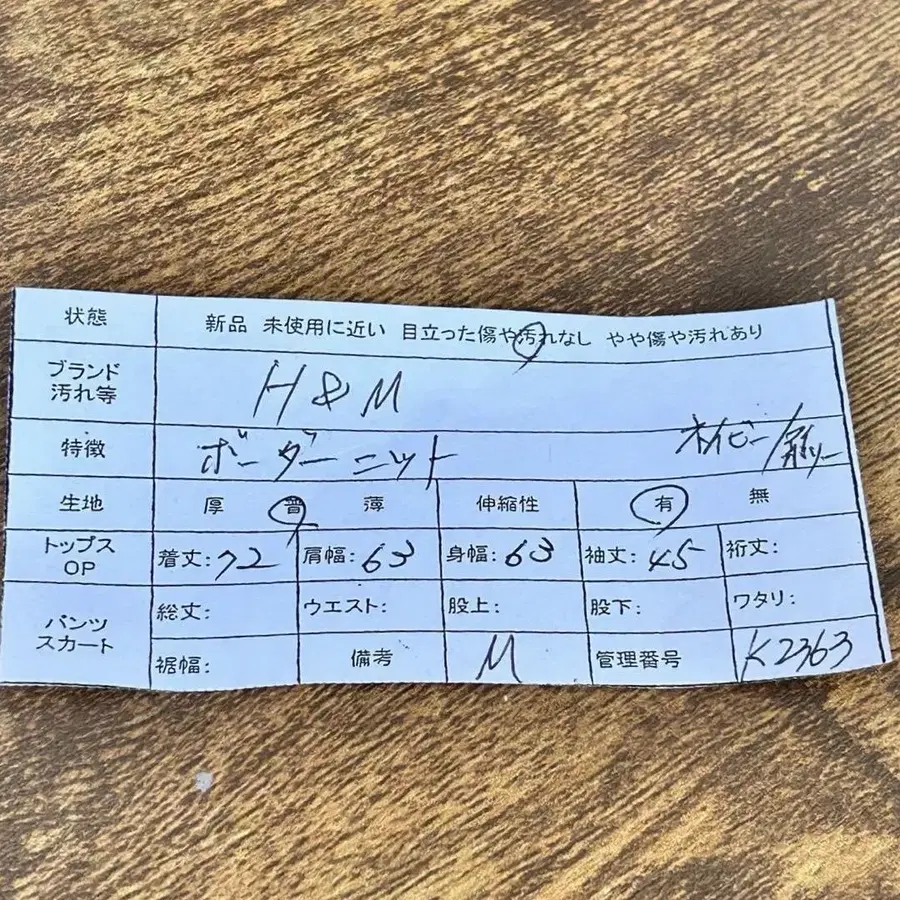 状態 新品 未使用に近い 目立った傷や汚れなし やや傷や汚れあり
ブランド
汚れ等 H&M
特徴 ボーダーニット ネイビー/
生地 厚 普 薄 伸縮性 有 無
トップス
OP 着丈:72 肩幅:63 身幅:63 袖丈:45 裄丈:
パンツ
スカート 総丈: ウエスト: 股上: 股下: ワタリ:
裾幅: 備考 M 管理番号 K2363